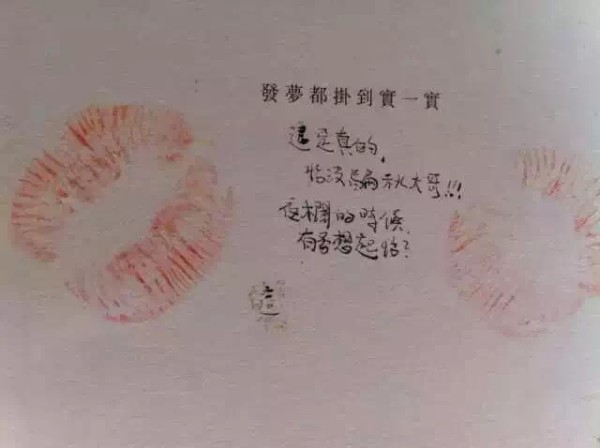 發夢都掛到實一實
這是真的,
怡沒騙大哥!!!
夜欄的時候
有否想起怡?